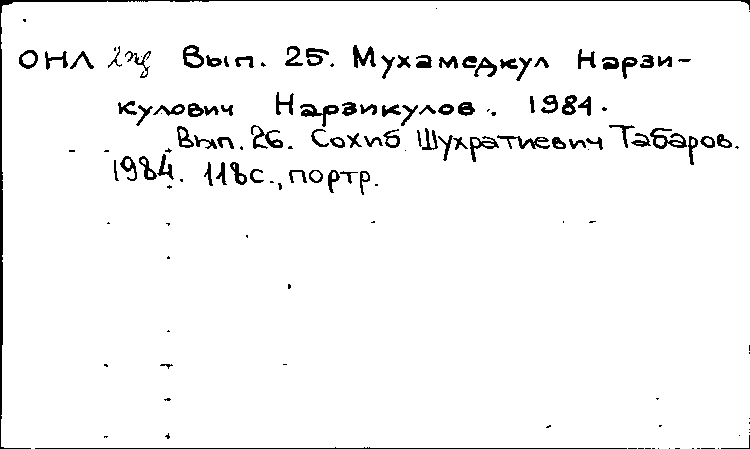 ОНЛ 2пд Вып. 25. Мухамедкул Нарзи-
кулович Нарзикулов. 1984.
Вып. 26. Сохиб Шухратиевич Табаров.
1984. 118с., портр.